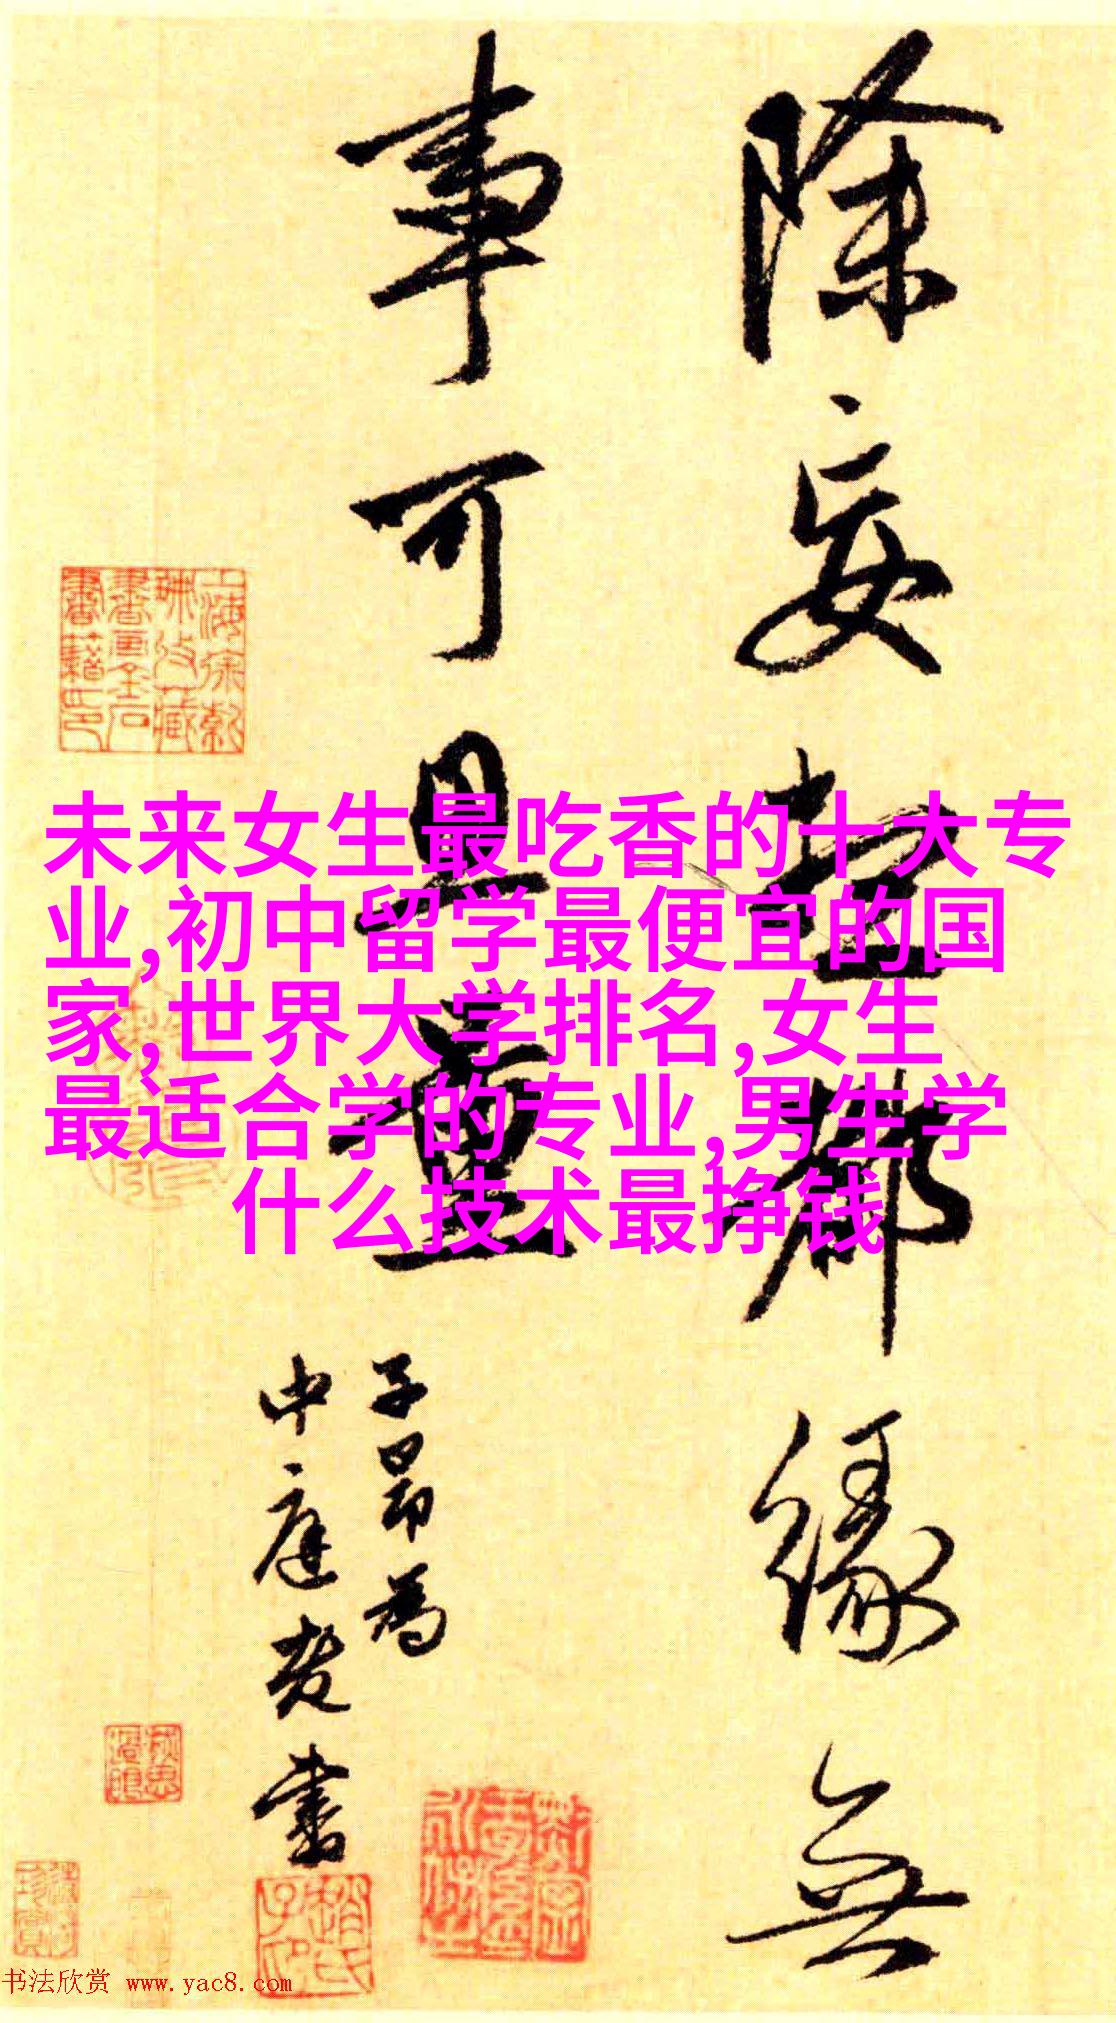 除妄都緣無
事可量
子昂為
中庭書
未来女生最吃香的十大专
业,初中留学最便宜的国
家,世界大学排名,女生
最适合学的专业,男生学
什么技术最挣钱
趙氏子印
书法欣赏 www.yac8.com